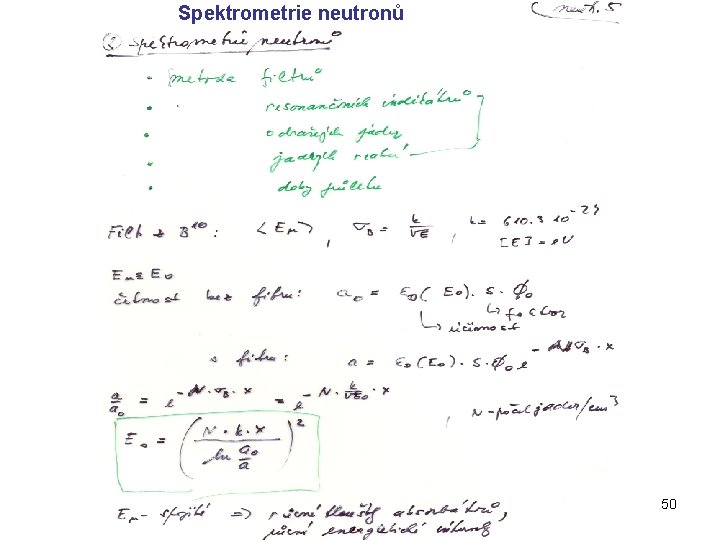 Spektrometrie neutronů
neutr. 5
② Spektrometrie neutronů
• metoda filtrů
• resonančních indikátorů
• odražených jader
• jaderných reakcí
• doby průletu
Filtr z B¹⁰: ⟨Eₙ⟩, σ_B = k/√E, k = 610.3 10⁻²⁴
[E] = eV
Eₙ ≡ E₀
četnost bez filtru: a₀ = ε₀(E₀). S. Φ₀
↳ faktor
↳ účinnost
s filtrem: a = ε₀(E₀). S. Φ₀ e^(-N σ_B · x)
a/a₀ = e^(-N·σ_B·x) = e^(-N·k/√E₀·x), N - počet jader/cm³
E₀ = (N·k·x / ln a₀/a)²
Eₙ - spojité ⇒ různé tloušťky absorbátorů,
různé energetické
50